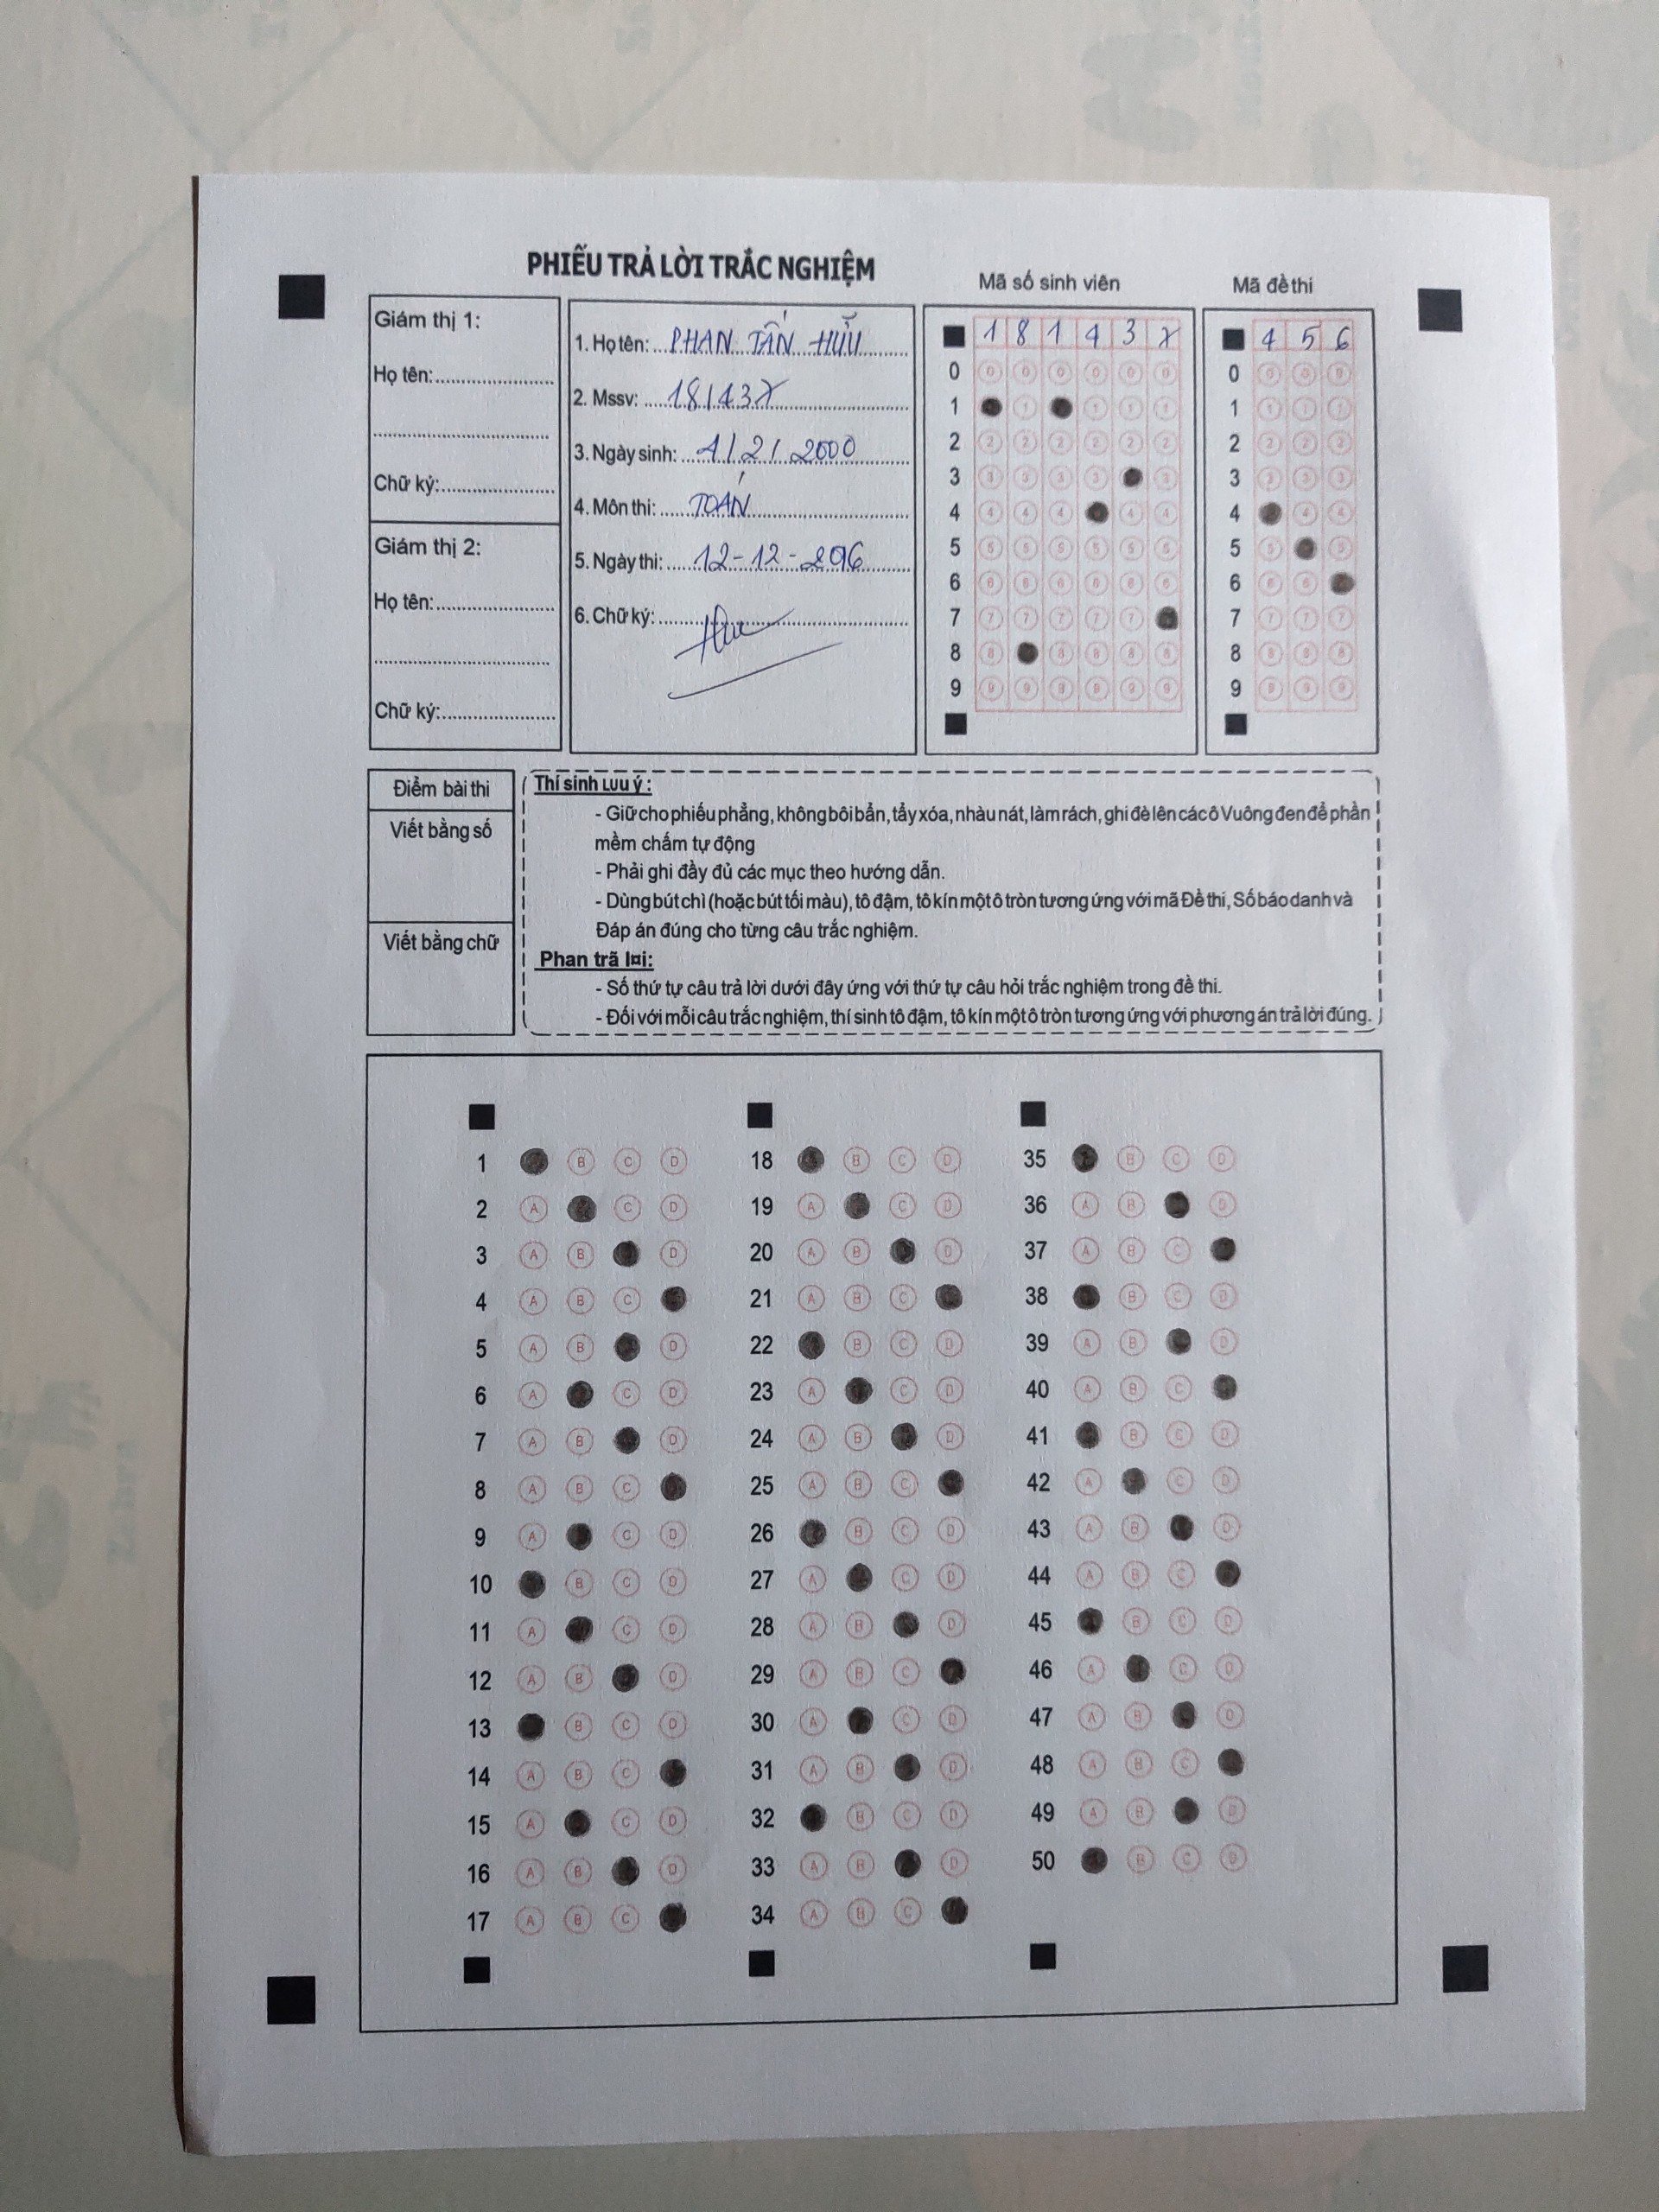 PHIẾU TRẢ LỜI TRẮC NGHIỆM
Mã số sinh viên
Mã đề thi
Giám thị 1:
Họ tên:
Chữ ký:
Giám thị 2:
Họ tên:
Chữ ký:
1. Họ tên: PHAN TẤN HỮU
2. Mssv: 181437
3. Ngày sinh: 1/2/2000
4. Môn thi: TOÁN
5. Ngày thi: 12-12-
6. Chữ ký:
1 8 1 4 3 7
0 0 0 0 0 0 0
1 1 1 1 1
2 2 2 2 2 2 2
3 3 3 3 3 3
4 4 4 4 4 4
5 5 5 5 5 5 5
6 6 6 6 6 6 6
7 7 7 7 7 7
8 8 8 8 8 8
9 9 9 9 9 9 9
4 5 6
0 0 0 0
1 1 1 1
2 2 2 2
3 3 3 3
4 4 4
5 5 5
6 6 6
7 7 7 7
8 8 8 8
9 9 9 9
Điểm bài thi
Viết bằng số
Viết bằng chữ
Thí sinh Lưu ý :
- Giữ cho phiếu phẳng, không bôi bẩn, tẩy xóa, nhàu nát, làm rách, ghi đè lên các ô Vuông đen để phần
mềm chấm tự động
- Phải ghi đầy đủ các mục theo hướng dẫn.
- Dùng bút chì (hoặc bút tối màu), tô đậm, tô kín một ô tròn tương ứng với mã Đề thi, Số báo danh và
Đáp án đúng cho từng câu trắc nghiệm.
Phan trã l¤i:
- Số thứ tự câu trả lời dưới đây ứng với thứ tự câu hỏi trắc nghiệm trong đề thi.
- Đối với mỗi câu trắc nghiệm, thí sinh tô đậm, tô kín một ô tròn tương ứng với phương án trả lời đúng.
1 B C D
2 A C D
3 A B D
4 A B C
5 A B D
6 A C D
7 A B D
8 A B C
9 A C D
10 B C D
11 A C D
12 A B D
13 B C D
14 A B C
15 A C D
16 A B D
17 A B C
18 B C D
19 A C D
20 A B D
21 A B C
22 B C D
23 A C D
24 A B D
25 A B C
26 B C D
27 A C D
28 A B D
29 A B C
30 A C D
31 A B D
32 B C D
33 A B D
34 A B C
35 B C D
36 A B D
37 A B C
38 B C D
39 A B D
40 A B C
41 B C D
42 A C D
43 A B D
44 A B C
45 B C D
46 A C D
47 A B D
48 A B C
49 A B D
50 B C D